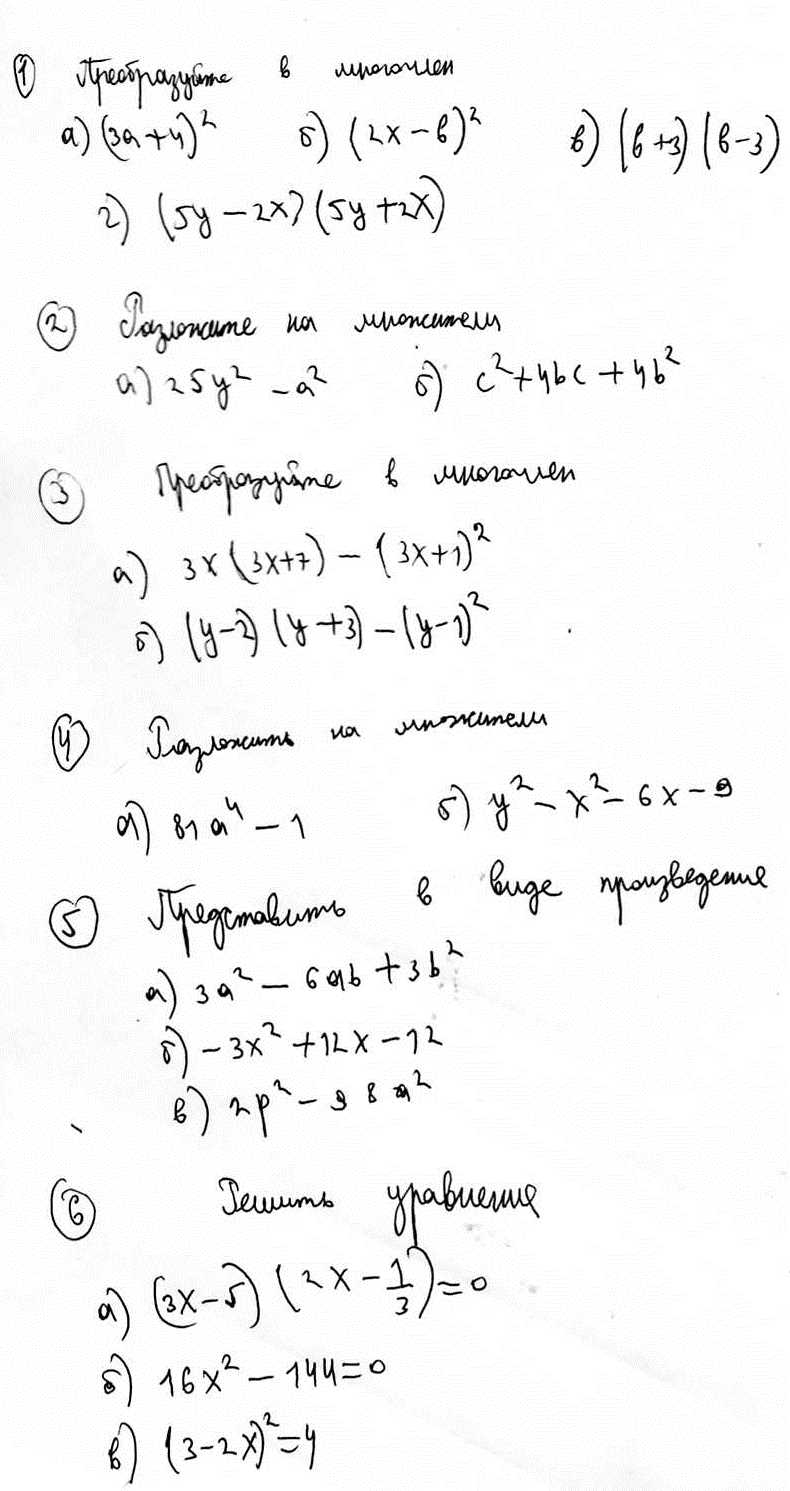 ① Преобразуйте в многочлен
а) (3a+4)² б) (2x-b)² в) (b+3)(b-3)
г) (5y-2x)(5y+2x)
② Разложите на множители
а) 25y² - a² б) c²+4bc+4b²
③ Преобразуйте в многочлен
а) 3x(3x+7) - (3x+1)²
б) (y-2)(y+3) - (y-1)²
④ Разложить на множители
а) 81a⁴ - 1 б) y² - x² - 6x - 9
⑤ Представить в виде произведение
а) 3a² - 6ab + 3b²
б) -3x² + 12x - 12
в) 2p² - 98a²
⑥ Решить уравнение
а) (3x-5)(2x - 1/3) = 0
б) 16x² - 144 = 0
в) (3-2x)² = 4